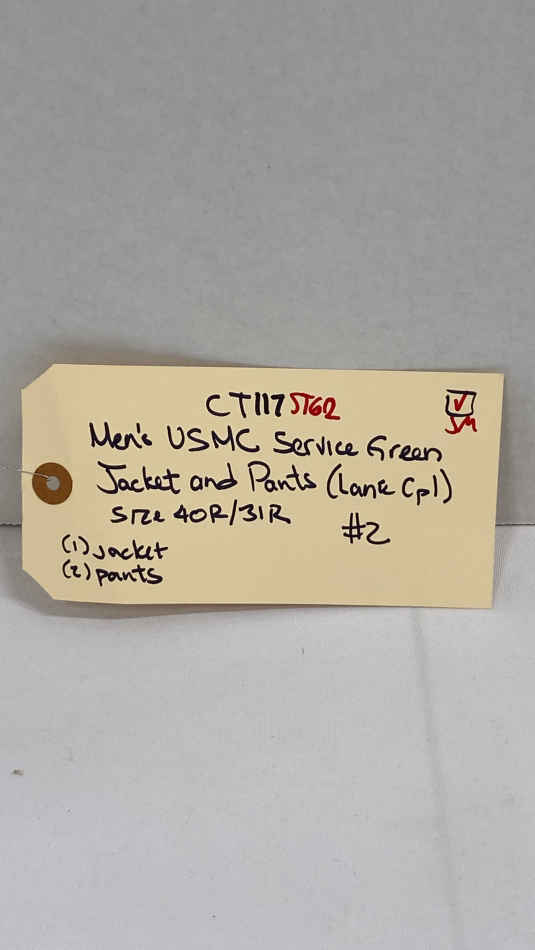 CT117 STG2
Men's USMC Service Green
Jacket and Pants (Lance Cpl)
Size 40R/31R
#2
(1) jacket
(2) pants